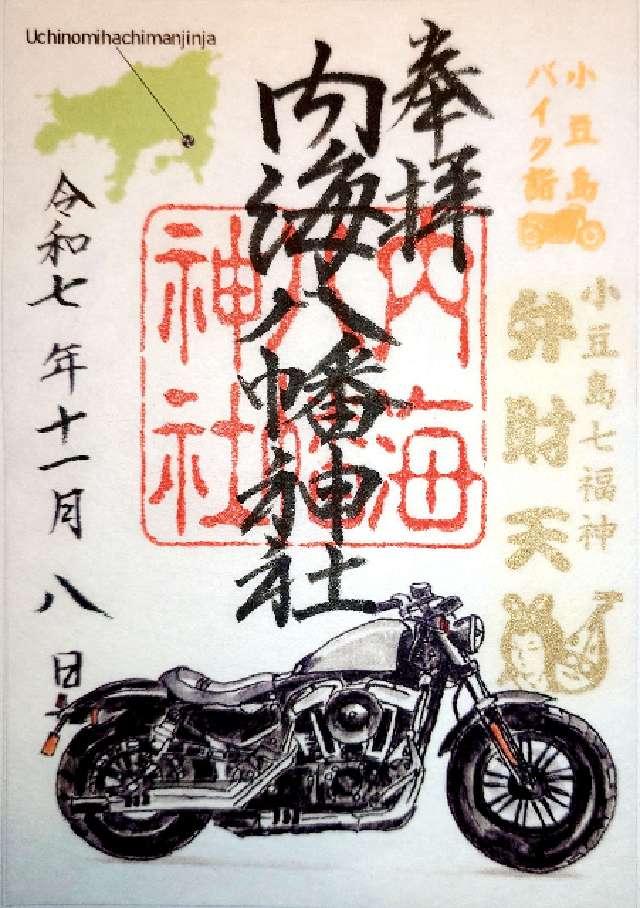 Uchinomihachimanjinja
小豆島
バイク詣
小豆島七福神
弁財天
奉拝
内海八幡神社
内海
八幡
神社
令和七年十一月八日